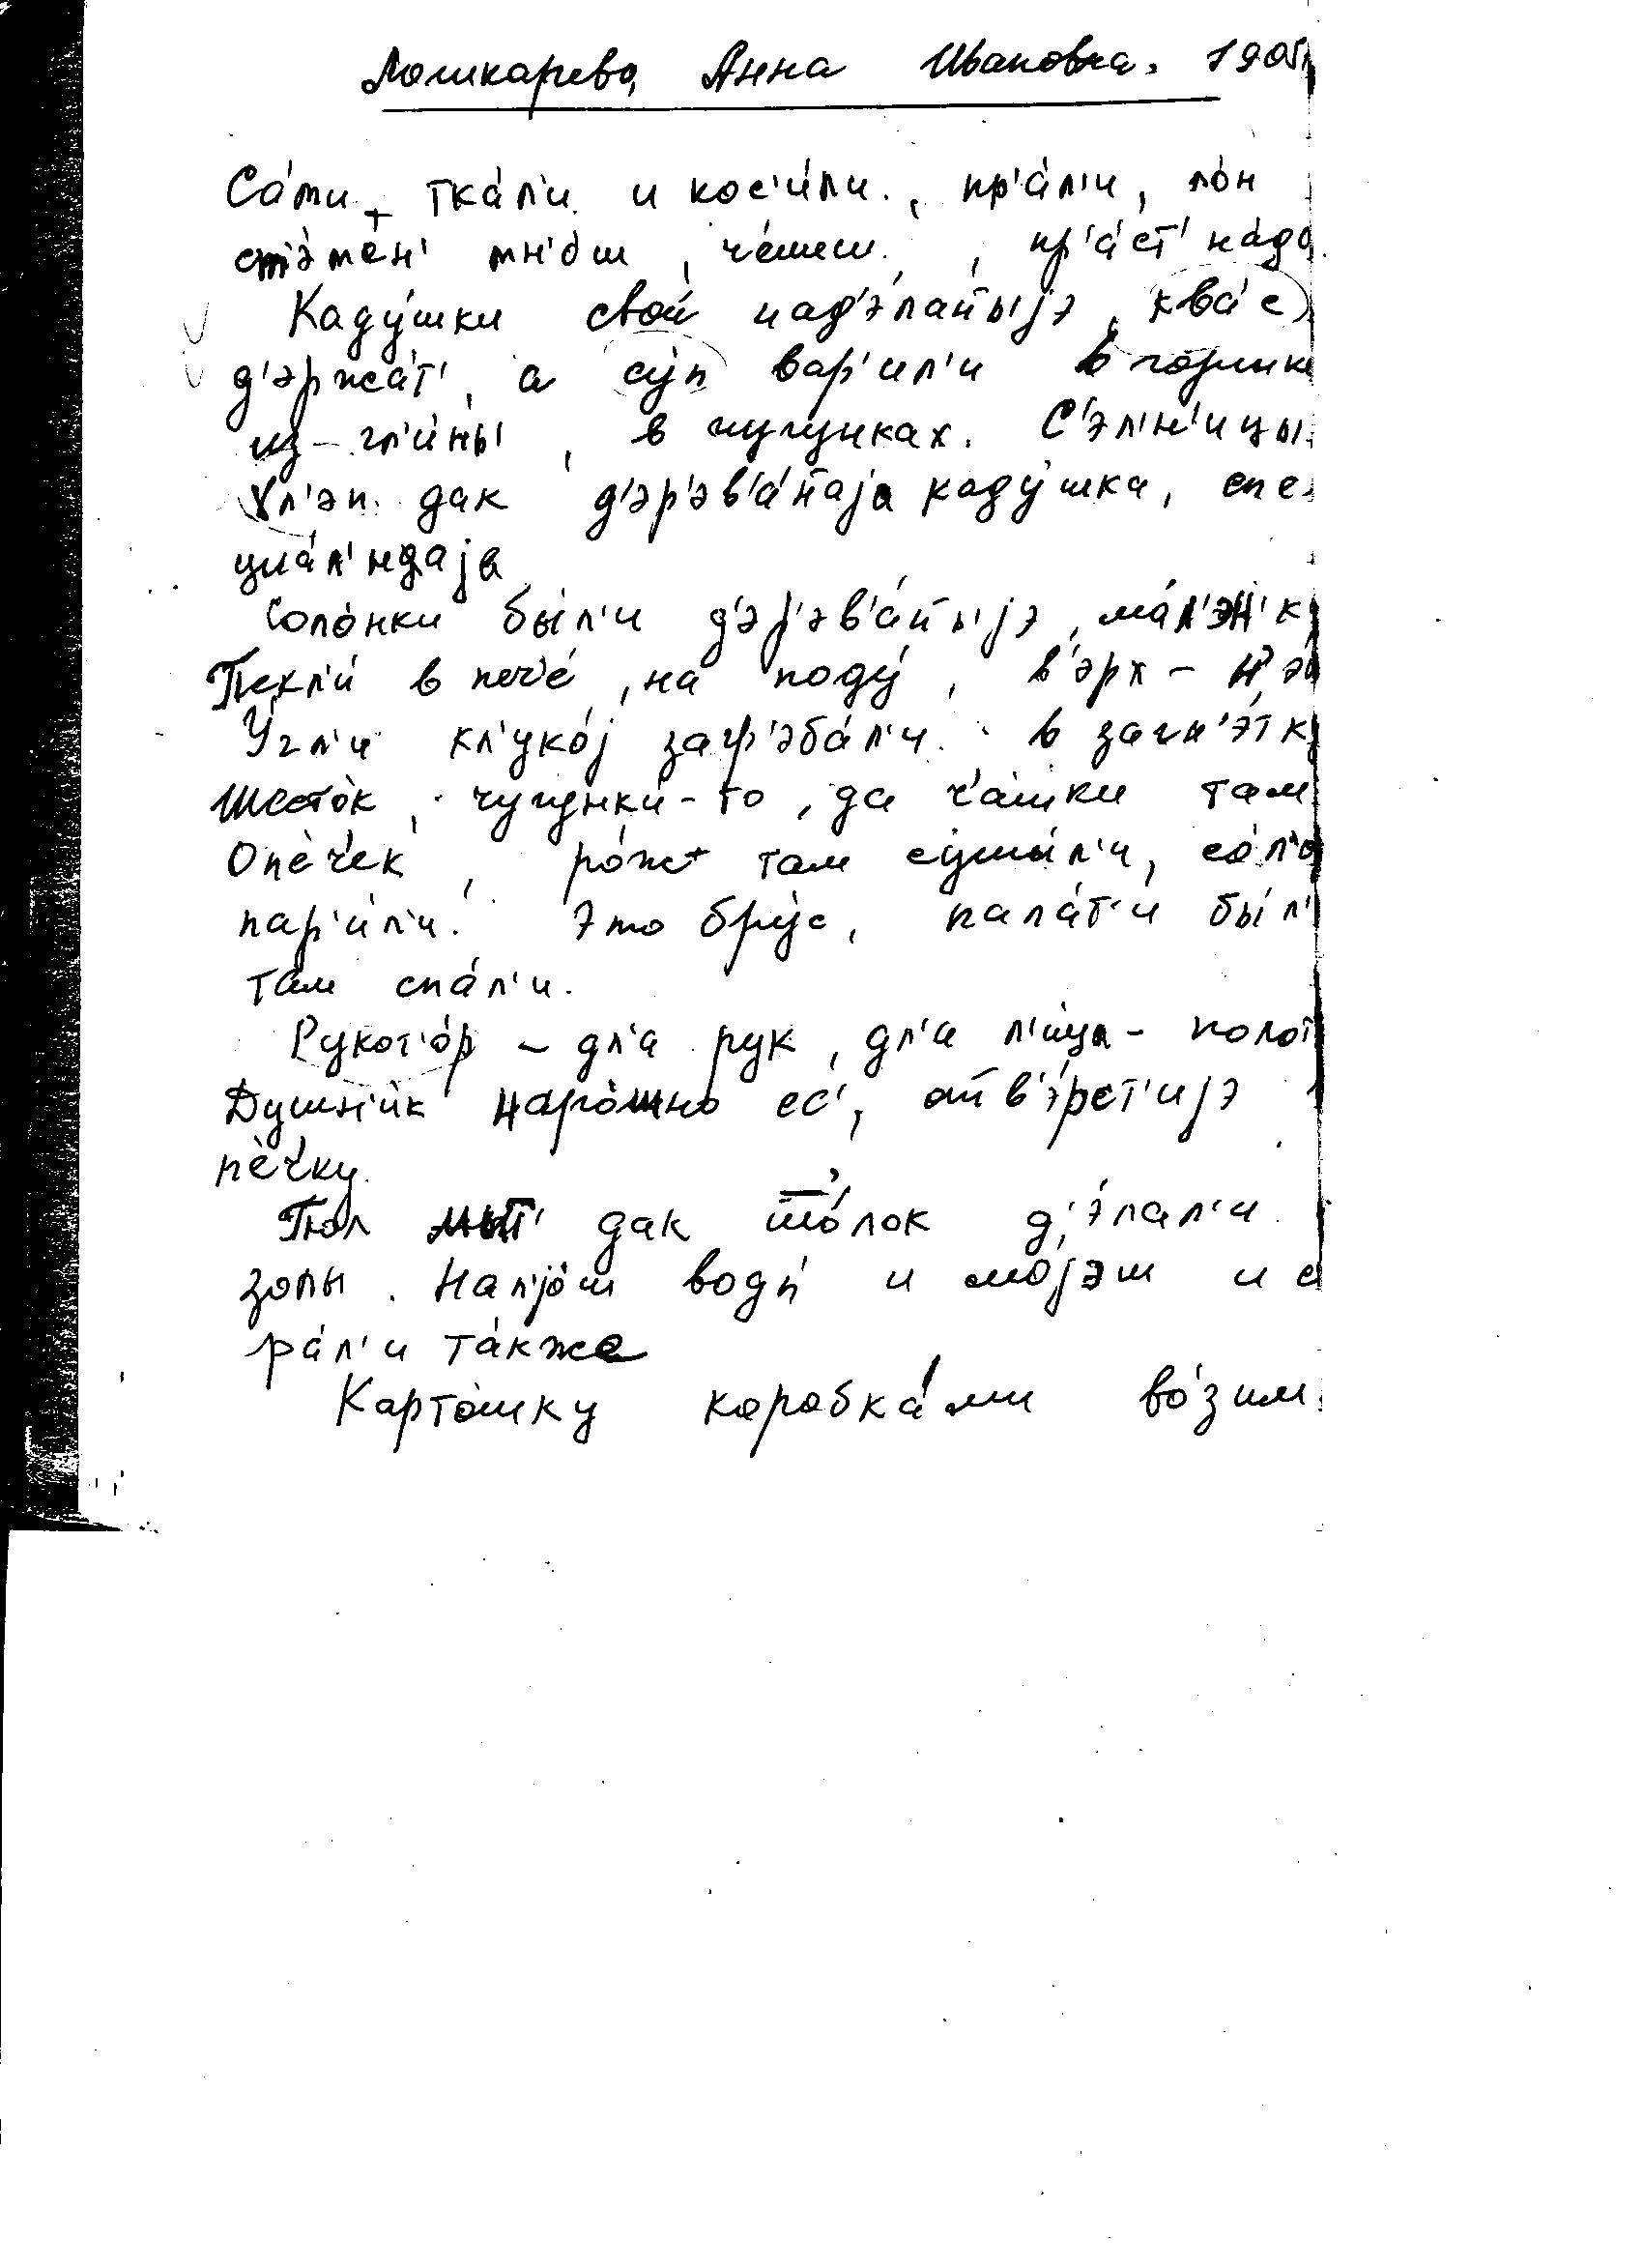 Лошкарева Анна Ивановна. 1905
Са́ми тка́л'и и кос'и́ли, пр'а́л'и, л́он
мн'о́ш, че́шеш, пр'а́ст' на́до
Каду́шки свои́ над'э́ланыjэ, ква́с
д'эржа́т', а су́п вар'ил'и в горшк
из-гл'и́ны, в чугунках. С'эл'н'ицы
хл'эп дак д'эр'эв'а́наjа каду́шка, спе
циа́л'ндаjа
Соло́нки бы́л'и д'эр'эв'а́ныjэ, ма́л'эн'к
Пекл'и́ в печ'е́, на поду́, в'эрх –
У́гл'и кл'уко́j загр'эба́л'и в загн'э́тк
Шесто́к, чугунки́-то, да ча́шки там
Опе́чек, ро́ж там сушы́л'и, со́л'о
пар'и́л'и. Это бру́с, пала́т'и бы́л'
там спа́л'и.
Рукот'о́р – дл'а рук, дл'а л'ица́ – полот
Душн'и́к наро́шно ес', отв'э́рст'иjэ
пе́чку.
Пол мыт' дак що́лок д'э́лал'и
золы. Нал'jо́ш воды́ и мо́jэш и с
ра́л'и та́кже
Карто́шку коробка́ми во́зим